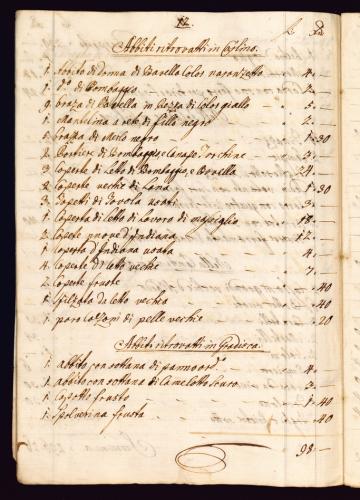 12
Abbiti ritrovatti in Coglino.
1. Abito di Donna di Bavella Color naranzetto 4.—
1. d.º di Bombaggio 2.—
9. braza di Bavella in Pezza di Color giallo 5.—
1. Mantelina a rete di fillo negro 2.—
1. di Merlo negro 1.30
2. Portiere di Bombaggio, e Canapo Torchine 3.—
3. Coperte di Letto di Bombaggio, e Bavella 24.—
2. Coperte vechie di Lana 1.30
3. Tapetti di Tavola usati 3.—
1. Coperta di letto di Lavoro di 18.—
2. Coperte nuove d'Indiana 12.—
1. Coperta d'Indiana usata 4.—
4. Coperte di letto vechie 7.—
2. Coperte fruste —.40
1. filzata de letto vechia —.40
1. paro Calzoni di pelle vechie —.20
Abbiti ritrovatti in Gradisca.
1. abbito con sottana di 4.—
1. abbito con sottana di Camelotto scuro 3.—
1. Capotto frusto 1.40
1. Spolverina frusta —.40
98.—